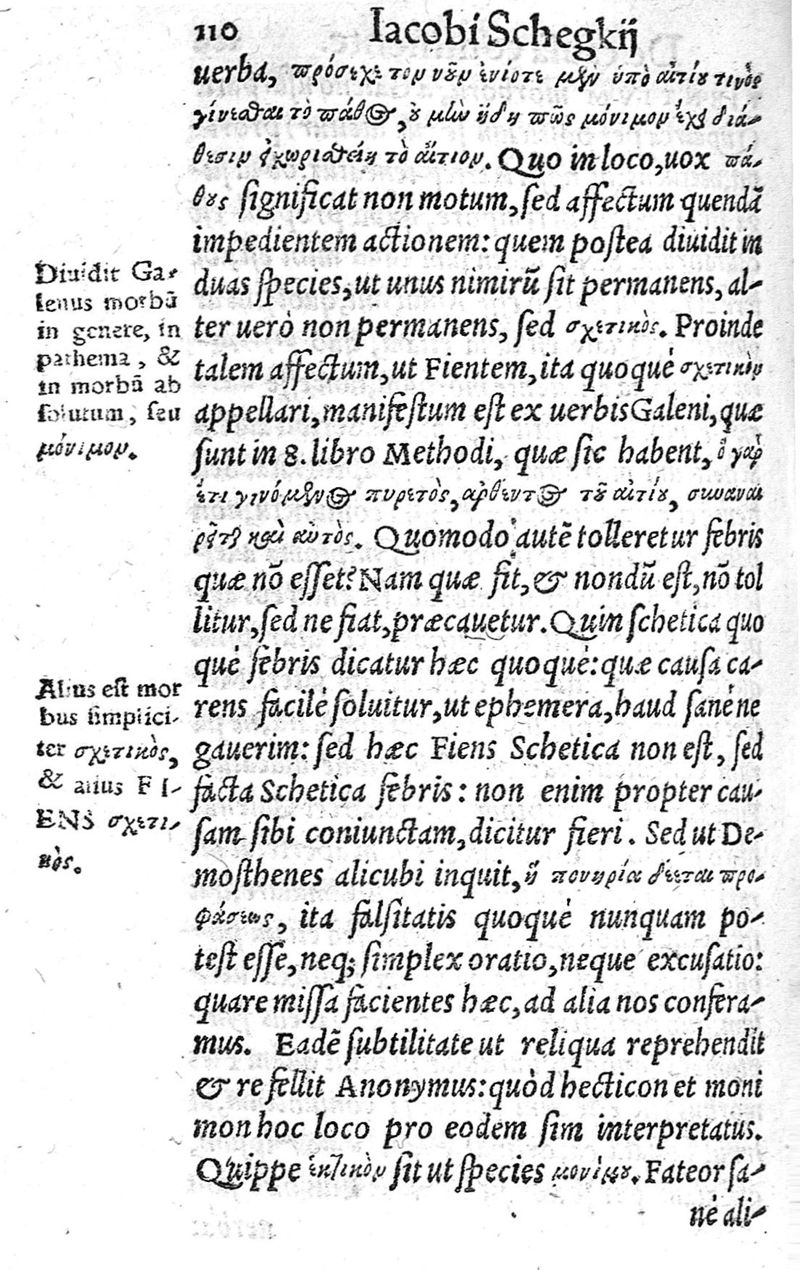 110 Iacobi Schegkij
uerba, πρόσεχε τον νοῦν ἐνίοτε μὲν ὑπὸ αἰτίου τινὸς
γίνεσθαι τὸ πάθος, οὐ μὴν ἤδη πῶς μόνιμον ἔχει διά-
θεσιν χωρισθείη τὸ αἴτιον. Quo in loco, uox πά-
θους significat non motum, sed affectum quendã
impedientem actionem: quem postea diuidit in
duas species, ut unus nimirũ sit permanens, al-
ter uerò non permanens, sed σχετικὸς. Proinde
talem affectum, ut Fientem, ita quoquè σχετικὸν
appellari, manifestum est ex uerbis Galeni, quæ
sunt in 8. libro Methodi, quæ sic habent, ὁ γὰρ
ἔτι γινόμενος πυρετὸς, ἀρθέντος τοῦ αἰτίου, συναναι
ρεῖται καὶ αὐτὸς. Quomodo autẽ tolleretur febris
quæ nõ esset? Nam quæ fit, & nondũ est, nõ tol
litur, sed ne fiat, præcauetur. Quin schetica quo
què febris dicatur hæc quoquè: quæ causa ca-
rens facilè soluitur, ut ephemera, haud sanè ne
gauerim: sed hæc Fiens Schetica non est, sed
facta Schetica febris: non enim propter cau-
sam sibi coniunctam, dicitur fieri. Sed ut De-
mosthenes alicubi inquit, ἡ πονηρία δεῖται προ-
φάσεως, ita falsitatis quoquè nunquam po-
test esse, neq; simplex oratio, neque excusatio:
quare missa facientes hæc, ad alia nos confera-
mus. Eadẽ subtilitate ut reliqua reprehendit
& refellit Anonymus: quòd hecticon et moni
mon hoc loco pro eodem sim interpretatus.
Quippe ἑκτικὸν sit ut species μονίμου. Fateor sa-
nè ali-
Diuidit Ga-
lenus morbũ
in genere, in
pathema, &
in morbũ ab
solutum, seu
μόνιμον.
Alius est mor
bus simplici-
ter σχετικὸς,
& alius FI-
ENS σχετι-
κὸς.